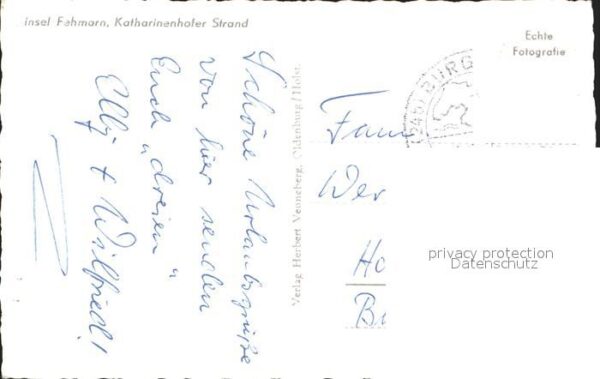 insel Fehmarn, Katharinenhofer Strand
Echte
Fotografie
(2449) BURG
Schöne Urlaubsgrüße
von hier senden
Euch "dreien"
Elly + Wilfried!
Verlag Herbert Venneberg, Oldenburg/Holst.
Fam
Wer
Ho
privacy protection
Datenschutz